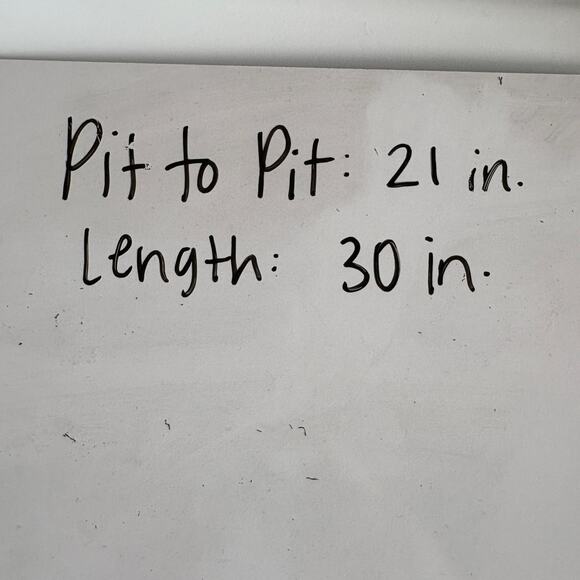 Pit to Pit: 21 in.
Length: 30 in.